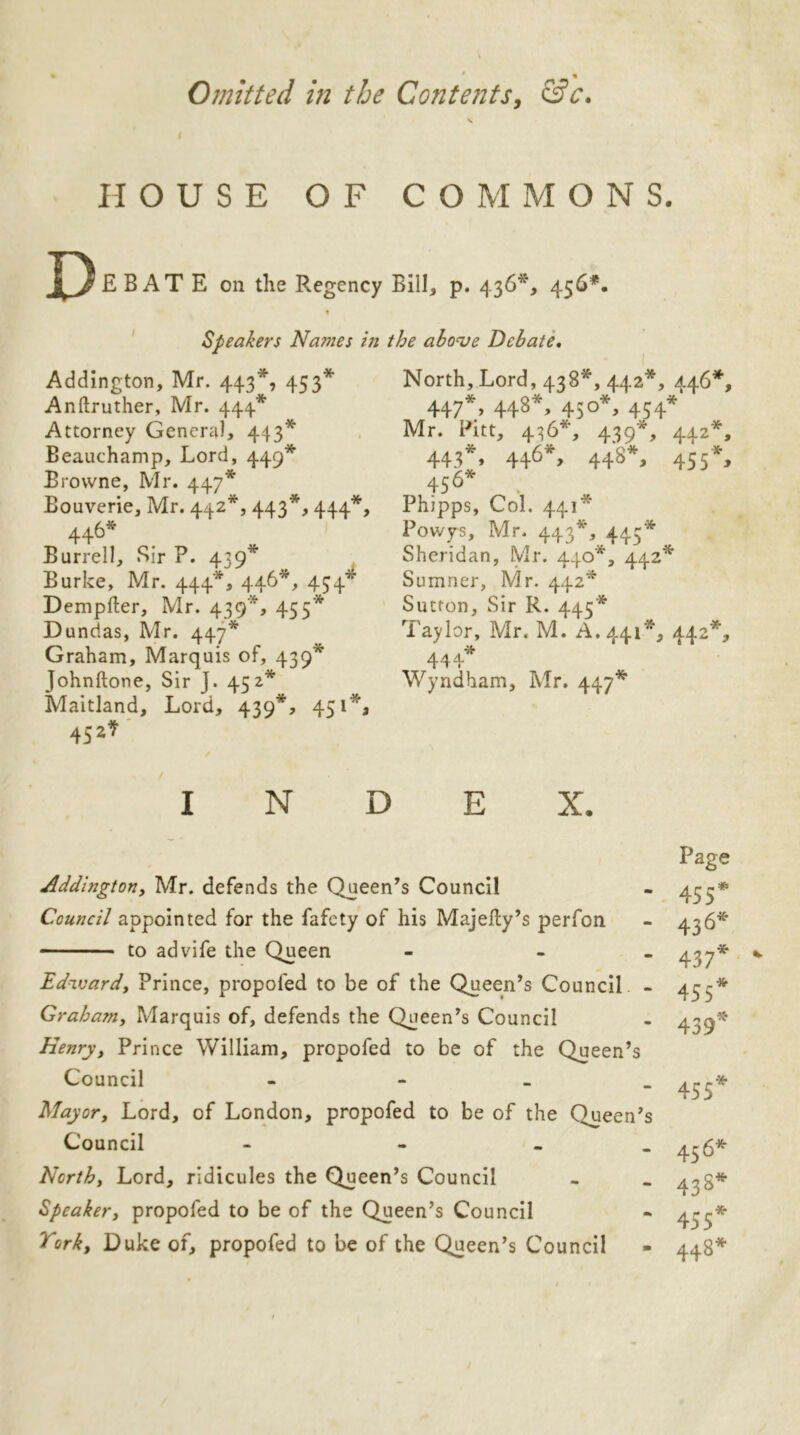 Omitted in the Contents, &c.
HOUSE OF COMMONS.
DEBATE on the Regency Bill, p. 436*, 456*.
Speakers Names in the above Debate.
Addington, Mr. 443*, 453*
Anſtruther, Mr. 444*
Attorney General, 443*
Beauchamp, Lord, 449*
Browne, Mr. 447*
Bouverie, Mr. 442*, 443*, 444*,
446*
Burrell, Sir P. 439*
Burke, Mr. 444*, 446*, 454*
Dempſter, Mr. 439*, 455*
Dundas, Mr. 447*
Graham, Marquis of, 439*
Johnſtone, Sir J. 452*
Maitland, Lord, 439*, 451*,
452*
North, Lord, 438*, 442*, 446*,
447*, 448*, 450*, 454*
Mr. Pitt, 436*, 439*, 442*,
443*, 446*, 448*, 455*,
456*
Phipps, Col. 441*
Powys, Mr. 443*, 445*
Sheridan, Mr. 440*, 442*
Sumner, Mr. 442*
Sutton, Sir R. 445*
Taylor, Mr. M. A. 441*, 442*,
444*
Wyndham, Mr. 447*
INDEX.
Page
Addington, Mr. defends the Queen's Council - 455*
Council appointed for the ſafety of his Majeſty's perſon - 436*
—— to adviſe the Queen - - - 437*
Edward, Prince, propoſed to be of the Queen's Council - 455*
Graham, Marquis of, defends the Queen's Council - 439*
Henry, Prince William, propoſed to be of the Queen's
Council - - - - 455*
Mayor, Lord, of London, propoſed to be of the Queen's
Council - - - - 456*
North, Lord, ridicules the Queen's Council - - 438*
Speaker, propoſed to be of the Queen's Council - 455*
York, Duke of, propoſed to be of the Queen's Council - 448*